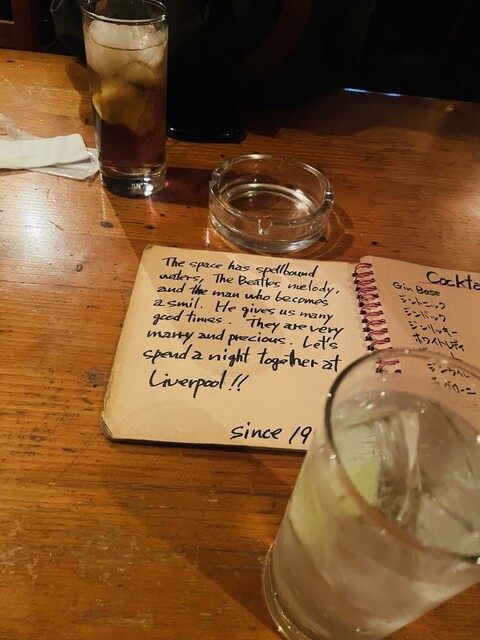 The space has spellbound
waters, The Beatles melody,
and the man who becomes
a smil. He gives us many
good times. They are very
marry and precious. Let's
spend a night together at
Liverpool!!
since 19
Cockta
Gin Base
ジントニック
ジンバック
ジンリッキー
ホワイトレディ